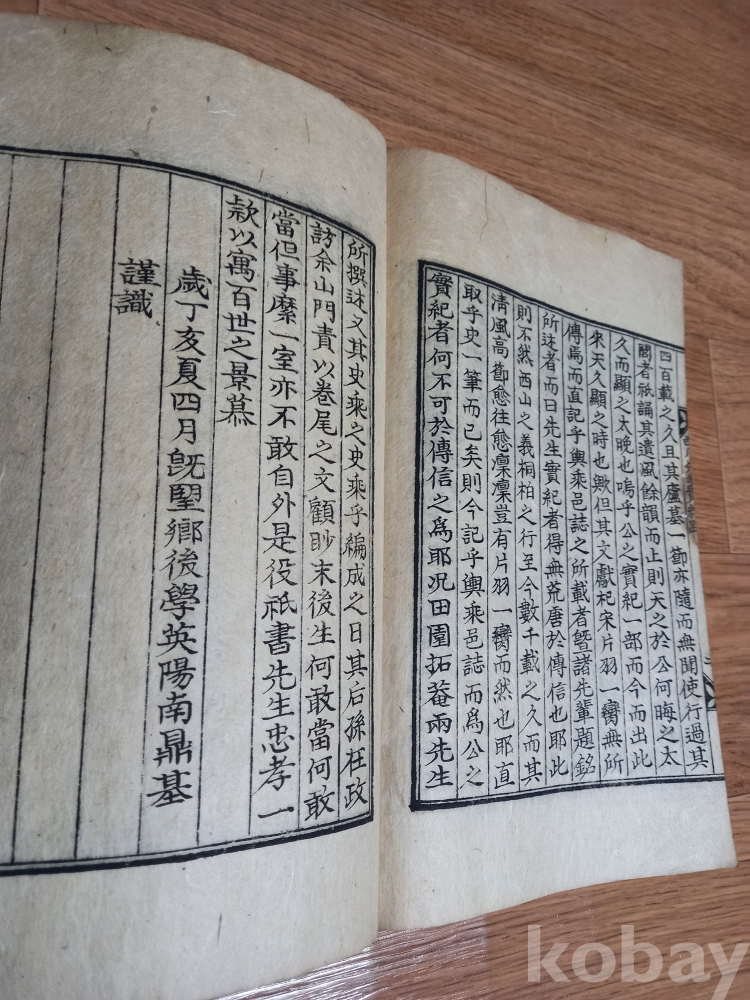 四百載之久且其廬墓一節亦隨而無聞使行過其
閭者祇誦其遺風餘韻而止則天之於公何晦之太
久而顯之太晚也嗚乎公之實紀一部而今而出此
來天久顯之時也歟但其文獻杞宋片羽一臠無所
傳焉而直記乎輿乘邑誌之所載者曁諸先輩題銘
所述者而曰先生實紀者得無莾唐於傳信也耶此
則不然西山之義桐柏之行至今數千載之久而其
淸風高節愈往愈凜凜豈有片羽一臠而然也耶直
取乎史一筆而已矣則今記乎輿乘邑誌而爲公之
實紀者何不可於傳信之爲耶况田園拓菴兩先生
所撰述又其史乘之史乘乎編成之日其后孫在政
訪余山門責以卷尾之文顧眇末後生何敢當何敢
當但事縻一室亦不敢自外是役祇書先生忠孝一
款以寓百世之景慕
歲丁亥夏四月旣望鄉後學英陽南鼎基
謹識
二
kobay